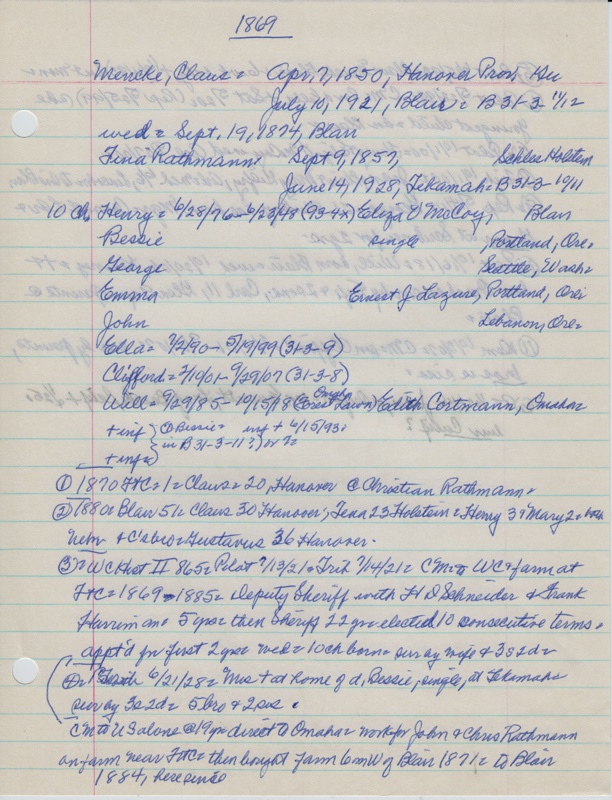 1869
Mencke, Claus = Apr, 7, 1850, Hanover Prov,
July 10, 1921, Blair = B 31-3-11/12
wed = Sept. 19, 1874, Blair
Tina Rathmann = Sept 9, 1857, Holstein
June 14, 1928, Tekamah = B 31-3-10/11
10 ch, Henry = 6/28/76 - 6/23/48 (93-4x) Eliza V McCoy, Blair
Bessie single Portland, Ore =
George Seattle, Wash =
Emma Ernest J. Lazure, Portland, Ore =
John Lebanon, Ore =
Ella = 7/2/90 - 5/19/99 (31-3-9)
Clifford = 7/10/01 - 9/29/07 (31-3-8)
Will = 7/29/85 - 10/15/18 (Forest Lawn) Edith Cortmann, Omaha
+ inf @ Bessie = inf + 6/15/93
in B 31-3-11?) or
+ inf
① 1870 FtC = 1 = Claus = 20, Hanover @ Christian Rathmann =
② 1880 = Blair 51 = Claus 30 Hanover, Tena 23 Holstein = Henry 3 + Mary 2 = both
Neb + Gustavus 36 Hanover =
③ = WC Hist II 865 = Pilot 7/13/21 = Trib 7/14/21 = C'm to WC + farm at
FtC = 1869 - 1885 = Deputy Sheriff with H D Schneider & Frank
Harriman = 5 yrs = then Sheriff 22 yrs = elected 10 consecutive terms =
appt'd for first 2 yrs = wed = 10 ch born = surv by wife & 3s 2d =
6/21/28 = Mrs + at home of d, Bessie, single, at Tekamah =
surv by 3s 2d = 5 bro & 2 sis =
C'm to US alone @ 19 yrs direct to Omaha = work for John & Chris Rathmann
on farm near FtC = then bought farm 6 mi W of Blair 1871 = to Blair
1884, here since